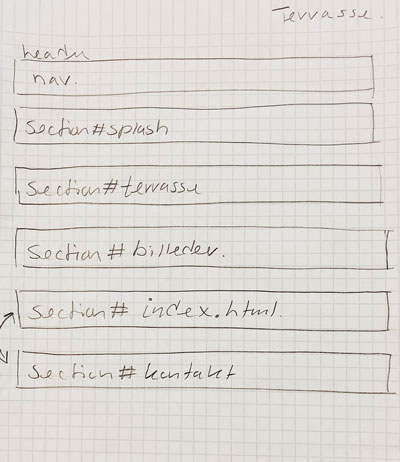 Terrasse.
header
nav.
section#splash
section#terrasse
section# billeder.
section# index.html.
section# kontakt